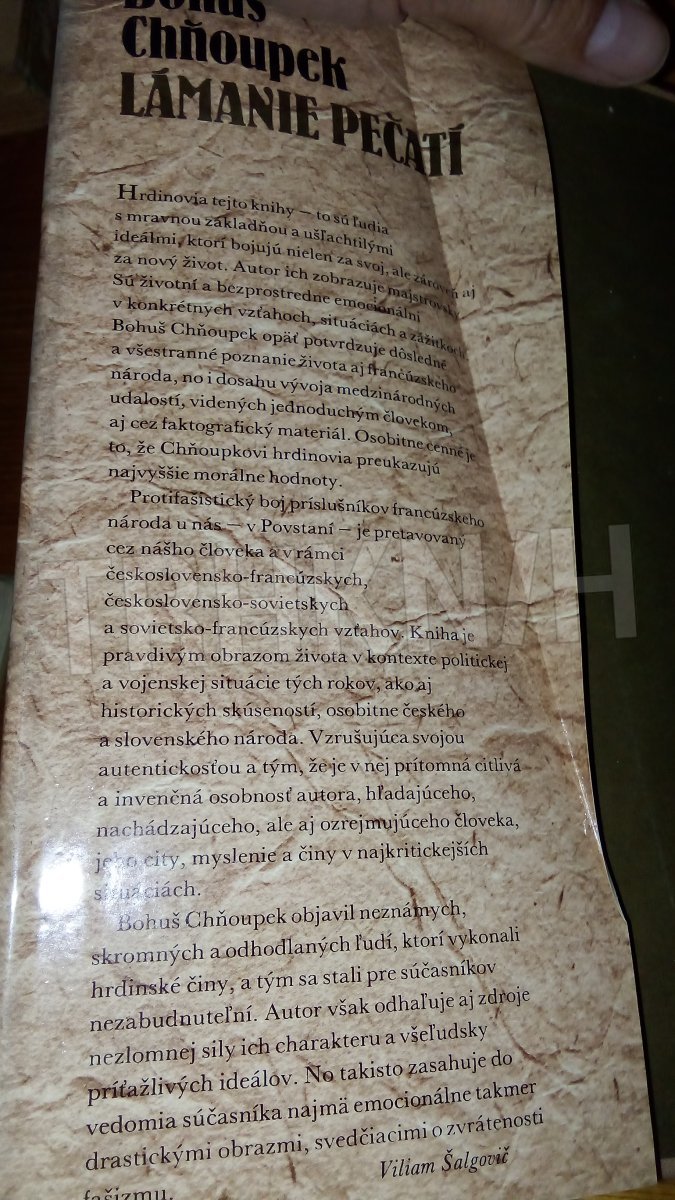 Bohuš
Chňoupek
LÁMANIE PEČATÍ
Hrdinovia tejto knihy — to sú ľudia
s mravnou základňou a ušľachtilými
ideálmi, ktorí bojujú nielen za svoj, ale zároveň aj
za nový život. Autor ich zobrazuje majstrovsky.
Sú životní a bezprostredne emocionálni
v konkrétnych vzťahoch, situáciách a zážitkoch.
Bohuš Chňoupek opäť potvrdzuje dôsledné
a všestranné poznanie života aj francúzskeho
národa, no i dosahu vývoja medzinárodných
udalostí, videných jednoduchým človekom,
aj cez faktografický materiál. Osobitne cenné je
to, že Chňoupkovi hrdinovia preukazujú
najvyššie morálne hodnoty.
Protifašistický boj príslušníkov francúzskeho
národa u nás — v Povstaní — je pretavovaný
cez nášho človeka a v rámci
československo-francúzskych,
československo-sovietskych
a sovietsko-francúzskych vzťahov. Kniha je
pravdivým obrazom života v kontexte politickej
a vojenskej situácie tých rokov, ako aj
historických skúseností, osobitne českého
a slovenského národa. Vzrušujúca svojou
autentickosťou a tým, že je v nej prítomná citlivá
a invenčná osobnosť autora, hľadajúceho,
nachádzajúceho, ale aj ozrejmujúceho človeka,
jeho city, myslenie a činy v najkritickejších
situáciách.
Bohuš Chňoupek objavil neznámych,
skromných a odhodlaných ľudí, ktorí vykonali
hrdinské činy, a tým sa stali pre súčasníkov
nezabudnuteľní. Autor však odhaľuje aj zdroje
nezlomnej sily ich charakteru a všeľudsky
príťažlivých ideálov. No takisto zasahuje do
vedomia súčasníka najmä emocionálne takmer
drastickými obrazmi, svedčiacimi o zvrátenosti
fašizmu.
Viliam Šalgovič